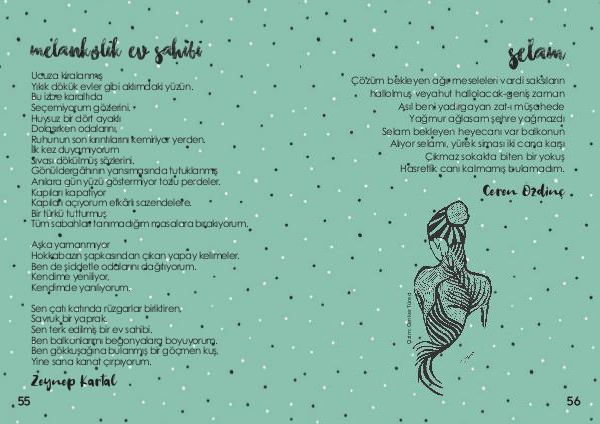 melankolik ev sahibi
Ucuza kiralanmış
Yıkık dökük evler gibi aklımdaki yüzün.
Bu izbe karaltıda
Seçemiyorum gözlerini.
Huysuz bir dört ayaklı
Dolaşırken odalarını,
Ruhunun son kırıntılarını kemiriyor yerden.
İlk kez duyamıyorum
Sıvası dökülmüş sözlerini.
Gönüldergâhının yansımasında tutuklanmış
Anılara gün yüzü göstermiyor tozlu perdeler.
Kapıları kapatıyor
Kapıları açıyorum efkârlı sazendelere.
Bir türkü tutturmuş
Tüm sabahları tanımadığım masalara bırakıyorum.
Aşka yamanmıyor
Hokkabazın şapkasından çıkan yapay kelimeler.
Ben de şiddetle odalarını dağıtıyorum.
Kendime yeniliyor,
Kendimde yanılıyorum.
Sen çatı katında rüzgarlar biriktiren,
Savruk bir yaprak.
Sen terk edilmiş bir ev sahibi.
Ben balkonlarını begonyalara boyuyorum.
Ben gökkuşağına bulanmış bir göçmen kuş,
Yine sana kanat çırpıyorum.
Zeynep Kartal
55
selam
Çözüm bekleyen ağır meseleleri vardı sakilerin
hallolmuş veyahut hallolacak geniş zaman
Asıl beni yadırgayan zat-ı müşahede
Yağmur ağlasam şehre yağmazdı
Selam bekleyen heyecanı var balkonun
Alıyor selamı, yürek siması iki cana karşı
Çıkmaz sokakta biten bir yokuş
Hasretlik canı kalmamış bulamadım.
Ceren Özdinç
56